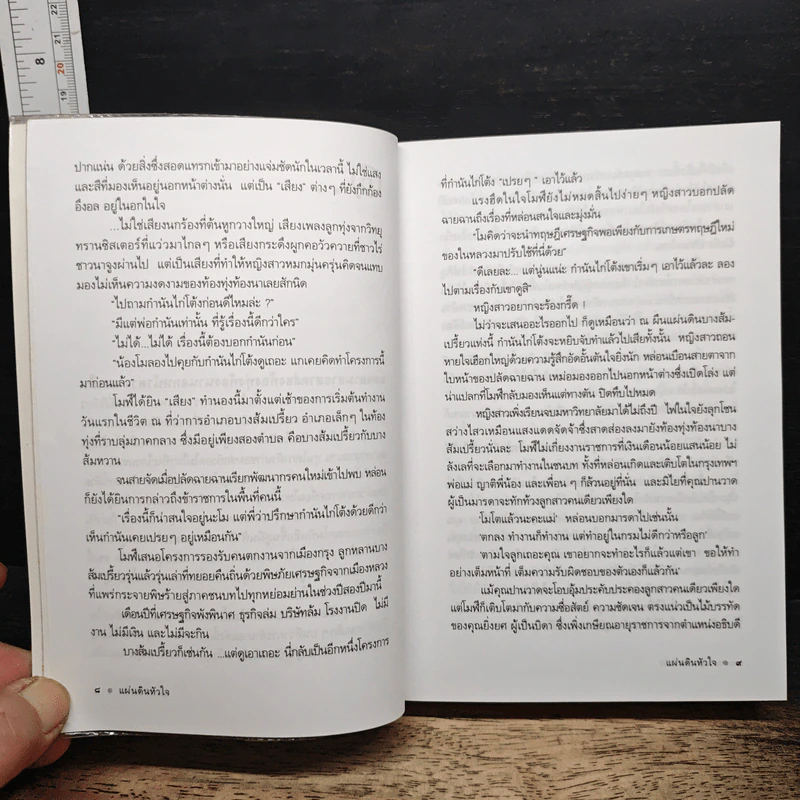 ปากแน่น ด้วยสิ่งซึ่งสอดแทรกเข้ามาอย่างแจ่มชัดนักในเวลานี้ ไม่ใช่แสง
และสีที่มองเห็นอยู่นอกหน้าต่างนั่น แต่เป็น “เสียง” ต่างๆ ที่ยังกึกก้อง
อึงอล อยู่ในอกในใจ
...ไม่ใช่เสียงนกร้องที่ต้นหูกวางใหญ่ เสียงเพลงลูกทุ่งจากวิทยุ
ทรานซิสเตอร์ที่แว่วมาไกลๆ หรือเสียงกระดึงผูกคอวัวควายที่ชาวไร่
ชาวนาจูงผ่านไป แต่เป็นเสียงที่ทำให้หญิงสาวหมกมุ่นครุ่นคิดจนแทบ
มองไม่เห็นความงดงามของท้องทุ่งท้องนาเลยสักนิด
“ไปถามกำนันไก่โต้งก่อนดีไหมล่ะ ?”
“มีแต่พ่อกำนันเท่านั้น ที่รู้เรื่องนี้ดีกว่าใคร”
“ไม่ได้...ไม่ได้ เรื่องนี้ต้องบอกกำนันก่อน”
“น้องโมลองไปคุยกับกำนันไก่โต้งดูเถอะ แกเคยคิดทำโครงการนี้
มาก่อนแล้ว”
โมพีได้ยิน “เสียง” ทำนองนี้มาตั้งแต่เช้าของการเริ่มต้นทำงาน
วันแรกในชีวิต ณ ที่ว่าการอำเภอบางส้มเปรี้ยว อำเภอเล็กๆ ในท้อง
ทุ่งที่ราบลุ่มภาคกลาง ซึ่งมีอยู่เพียงสองตำบล คือบางส้มเปรี้ยวกับบาง
ส้มหวาน
จนสายจัดเมื่อปลัดฉายฉานเรียกพัฒนากรคนใหม่เข้าไปพบ หล่อน
ก็ยังได้ยินการกล่าวถึงข้าราชการในพื้นที่คนนี้
“เรื่องนี้ก็น่าสนใจอยู่นะโม แต่พี่ว่าปรึกษากำนันไก่โต้งด้วยดีกว่า
เห็นกำนันเคยเปรยๆ อยู่เหมือนกัน”
โมพีเสนอโครงการรองรับคนตกงานจากเมืองกรุง ลูกหลานบาง
ส้มเปรี้ยวรุ่นแล้วรุ่นเล่าที่ทยอยคืนถิ่นด้วยพิษภัยเศรษฐกิจจากเมืองหลวง
ที่แพร่กระจายพิษร้ายสู่ภาคชนบทไปทุกหย่อมย่านในช่วงปีสองปีมานี้
เดือนปีที่เศรษฐกิจพังพินาศ ธุรกิจล่ม บริษัทล้ม โรงงานปิด ไม่มี
งาน ไม่มีเงิน และไม่มีจะกิน
บางส้มเปรี้ยวก็เช่นกัน ...แต่ดูเอาเถอะ นี่กลับเป็นอีกหนึ่งโครงการ
๘ แผ่นดินหัวใจ
ที่กำนันไก่โต้ง “เปรยๆ” เอาไว้แล้ว
แรงฮึดในใจโมพียังไม่หมดสิ้นไปง่ายๆ หญิงสาวบอกปลัด
ฉายฉานถึงเรื่องที่หล่อนสนใจและมุ่งมั่น
“โมคิดว่าจะนำทฤษฎีเศรษฐกิจพอเพียงกับการเกษตรทฤษฎีใหม่
ของในหลวงมาปรับใช้ที่นี่ด้วย”
“ดีเลยละ... แต่นู่นแน่ะ กำนันไก่โต้งเขาเริ่มๆ เอาไว้แล้วละ ลอง
ไปตามเรื่องกับเขาดูสิ”
หญิงสาวอยากจะร้องกรี๊ด !
ไม่ว่าจะเสนออะไรออกไป ก็ดูเหมือนว่า ณ ผืนแผ่นดินบางส้ม-
เปรี้ยวแห่งนี้ กำนันไก่โต้งจะหยิบจับทำแล้วไปเสียทั้งนั้น หญิงสาวถอน
หายใจเฮือกใหญ่ด้วยความรู้สึกอัดอั้นตันใจยิ่งนัก หล่อนเบือนสายตาจาก
ใบหน้าของปลัดฉายฉาน เหม่อมองออกไปนอกหน้าต่างซึ่งเปิดโล่ง แต่
น่าแปลกที่โมพีกลับมองเห็นแต่ทางตัน ปิดทึบไปหมด
หญิงสาวเพิ่งเรียนจบมหาวิทยาลัยมาได้ไม่ถึงปี ไฟในใจยังลุกโชน
สว่างไสวเหมือนแสงแดดจัดจ้าซึ่งสาดส่องลงมายังท้องทุ่งท้องนาบาง
ส้มเปรี้ยวนั่นละ โมพีไม่เกี่ยงงานราชการที่เงินเดือนน้อยแสนน้อย ไม่
ลังเลที่จะเลือกมาทำงานในชนบท ทั้งที่หล่อนเกิดและเติบโตในกรุงเทพฯ
พ่อแม่ ญาติพี่น้อง และเพื่อน ๆ ก็ล้วนอยู่ที่นั่น และมิไยที่คุณปานวาด
ผู้เป็นมารดาจะทักท้วงลูกสาวคนเดียวเพียงใด
‘โมโตแล้วนะคะแม่’ หล่อนบอกมารดาไปเช่นนั้น
‘ตกลง ทำงานก็ทำงาน แต่ทำอยู่ในกรมไม่ดีกว่าหรือลูก’
‘ตามใจลูกเถอะคุณ เขาอยากจะทำอะไรก็แล้วแต่เขา ขอให้ทำ
อย่างเต็มหน้าที่ เต็มความรับผิดชอบของตัวเองก็แล้วกัน’
แม้คุณปานวาดจะโอบอุ้มประคับประคองลูกสาวคนเดียวเพียงใด
แต่โมพีก็เติบโตมากับความซื่อสัตย์ ความชัดเจน ตรงแน่วเป็นไม้บรรทัด
ของคุณยิ่งยศ ผู้เป็นบิดา ซึ่งเพิ่งเกษียณอายุราชการจากตำแหน่งอธิบดี
แผ่นดินหัวใจ ๙
8
22
21
20
19